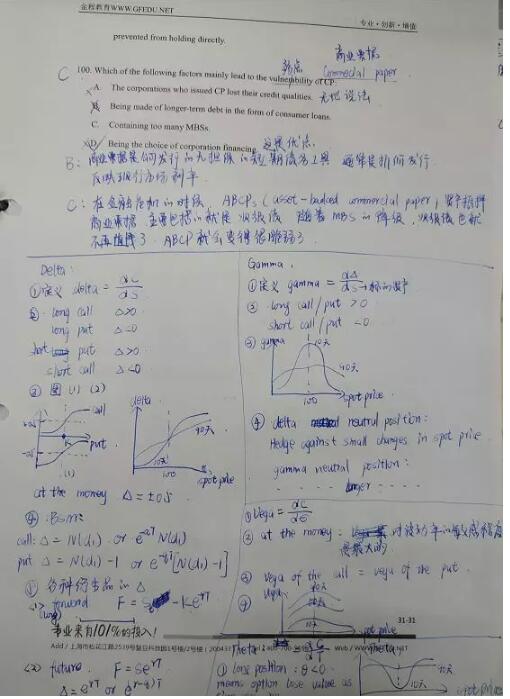 金程教育WWW.GFEDU.NET
专业·创新·增值
prevented from holding directly.
商业票据
弱点 Commercial paper
C 100. Which of the following factors mainly lead to the vulnerability of CP:
A. The corporations who issued CP lost their credit qualities. 无此说法
B. Being made of longer-term debt in the form of consumer loans.
C. Containing too many MBSs.
D. Being the choice of corporation financing. 这是优点
B: 商业票据是 发行的无担保的短期债务工具 通常是折价发行
反映现行市场利率
C: 在金融危机的时候, ABCPs (asset-backed commercial paper) 资产抵押
商业票据 主要包括的就是次级债 随着MBS的降级, 次级债也就
不再值得了. ABCP就会变得很脆弱了.
Delta:
① 定义 delta = dc/ds
② long call Δ>0
long put Δ<0
short put Δ>0
short call Δ<0
③ 图 (1) (2)
call
put
(1)
delta
90天
10天
100
spot price
at the money Δ = ±0.5
④ BSM:
call: Δ = N(d₁) or e^-qT N(d₁)
put Δ = N(d₁) -1 or e^-qT [N(d₁) -1]
⑤ 各种衍生品的 Δ
<1> forward F = S - Ke^-rT
(long)
专业来自101%的投入!
<2> future F = Se^rT
Δ = e^rT or e^(r-q)T
Gamma.
① 定义 gamma = dΔ/ds → 标的资产
② long call/put >0
short call/put <0
③ gamma
10天
90天
100
spot price
④ delta neutral position:
Hedge against small changes in spot price
gamma neutral position:
- - - - - - larger - - - -
① Vega = dc/dσ
② at the money: 对波动率的敏感程度
是最大的
③ vega of the call = vega of the put.
④ vega
spot price
31-31
Theta:
① long position: θ<0
means option lose value as
10天